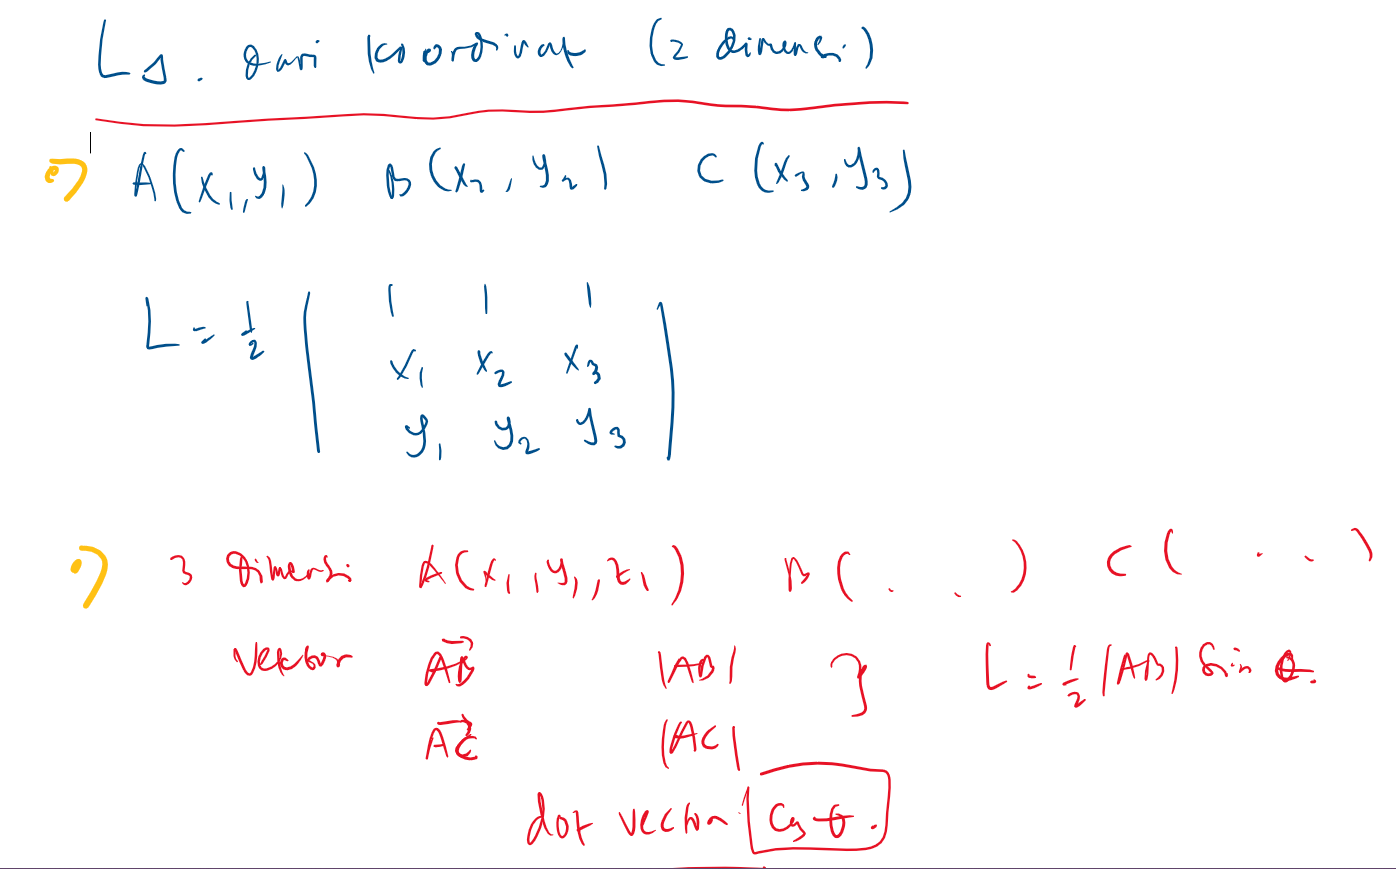 L Δ. dari koordinat (2 dimensi)
•) A(x₁,y₁) B(x₂,y₂) C(x₃,y₃)
L = 1/2 | 1 1 1
x₁ x₂ x₃
y₁ y₂ y₃ |
•) 3 Dimensi A(x₁,y₁,z₁) B(. . ) C( . . . )
Vektor AB |AB| } L = 1/2 |AB| Sin θ.
AC |AC|
dot vector Cos θ.